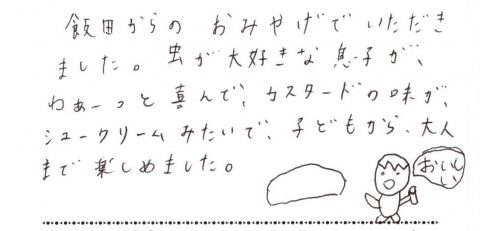 飯田からの おみやげで いただき
ました。虫が大好きな息子が、
わぁーっと喜んで、カスタードの味が、
シュークリームみたいで、子どもから、大人
まで楽しめました。
おいしい